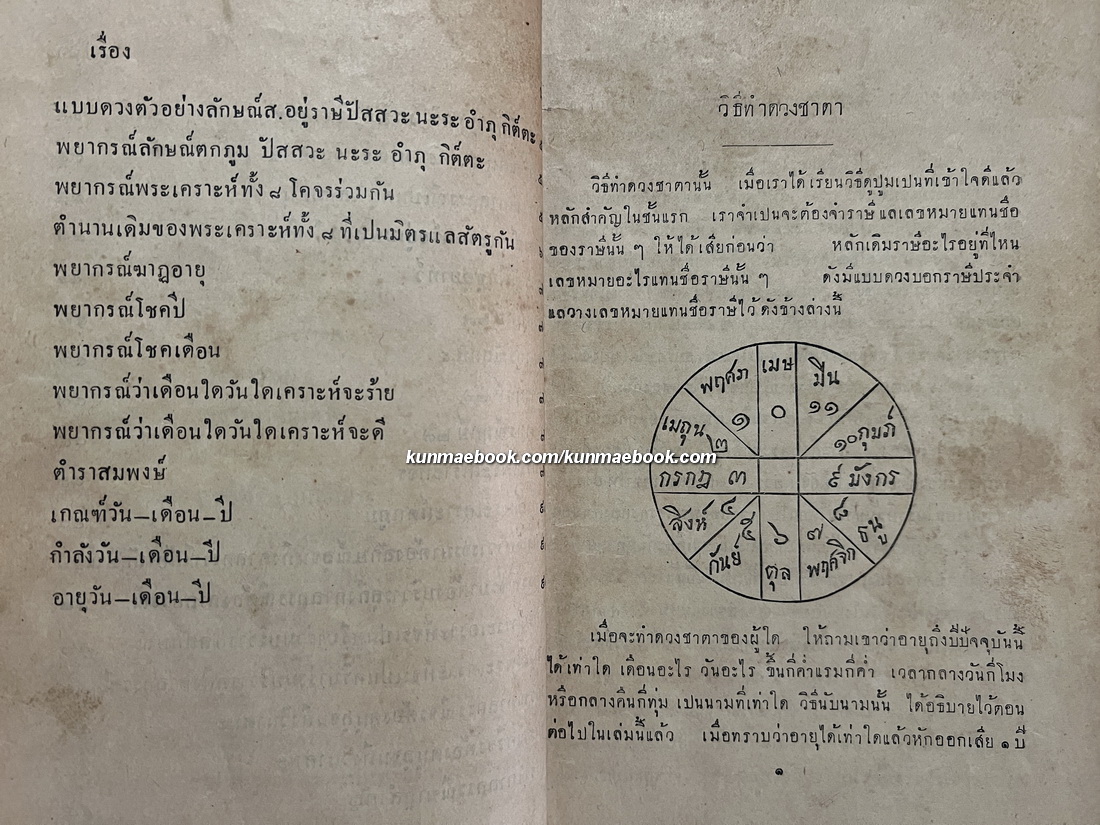 เรื่อง
แบบดวงตัวอย่างลักษณ์ส.อยู่ราษีปัสสวะ นะระ อำภุ กิต์ตะ
พยากรณ์ลักษณ์ตกภูม ปัสสวะ นะระ อำภุ กิต์ตะ
พยากรณ์พระเคราะห์ทั้ง ๘ โคจรร่วมกัน
ตำนานเดิมของพระเคราะห์ทั้ง ๘ ที่เปนมิตรแลสัตรูกัน
พยากรณ์ฆาฏอายุ
พยากรณ์โชคปี
พยากรณ์โชคเดือน
พยากรณ์ว่าเดือนใดวันใดเคราะห์จะร้าย
พยากรณ์ว่าเดือนใดวันใดเคราะห์จะดี
ตำราสมพงษ์
เกณฑ์วัน—เดือน—ปี
กำลังวัน—เดือน—ปี
อายุวัน—เดือน—ปี
วิธีทำดวงชาตา
วิธีทำดวงชาตานั้น เมื่อเราได้เรียนวิธีดูปูมเปนที่เข้าใจดีแล้ว
หลักสำคัญในชั้นแรก เราจำเปนจะต้องจำราษี แลเลขหมายแทนชื่อ
ของราษีนั้น ๆ ให้ได้เสียก่อนว่า หลักเดิมราษีอะไรอยู่ที่ไหน
เลขหมายอะไรแทนชื่อราษีนั้น ๆ ดังมีแบบดวงบอกราษีประจำ
แลวางเลขหมายแทนชื่อราษีไว้ดังข้างล่างนี้
พฤศภ ๑
เมษ ๐
มีน ๑๑
เมถุน ๒
๑๐ กุมภ์
กรกฎ ๓
๙ มังกร
สิงห์ ๔
๘ ธนู
กันย์ ๕
๖ ตุล
๗ พฤศจิก
kunmaebook.com/kunmaebook.com
เมื่อจะทำดวงชาตาของผู้ใด ให้ถามเขาว่าอายุถึงปีปัจจุบันนี้
ได้เท่าใด เดือนอะไร วันอะไร ขึ้นกี่ค่ำแรมกี่ค่ำ เวลากลางวันกี่โมง
หรือกลางคืนกี่ทุ่ม เปนนามที่เท่าใด วิธีนับนามนั้น ได้อธิบายไว้ตอน
ต่อไปในเล่มนี้แล้ว เมื่อทราบว่าอายุได้เท่าใดแล้วหักออกเสีย ๑ ปี
๑